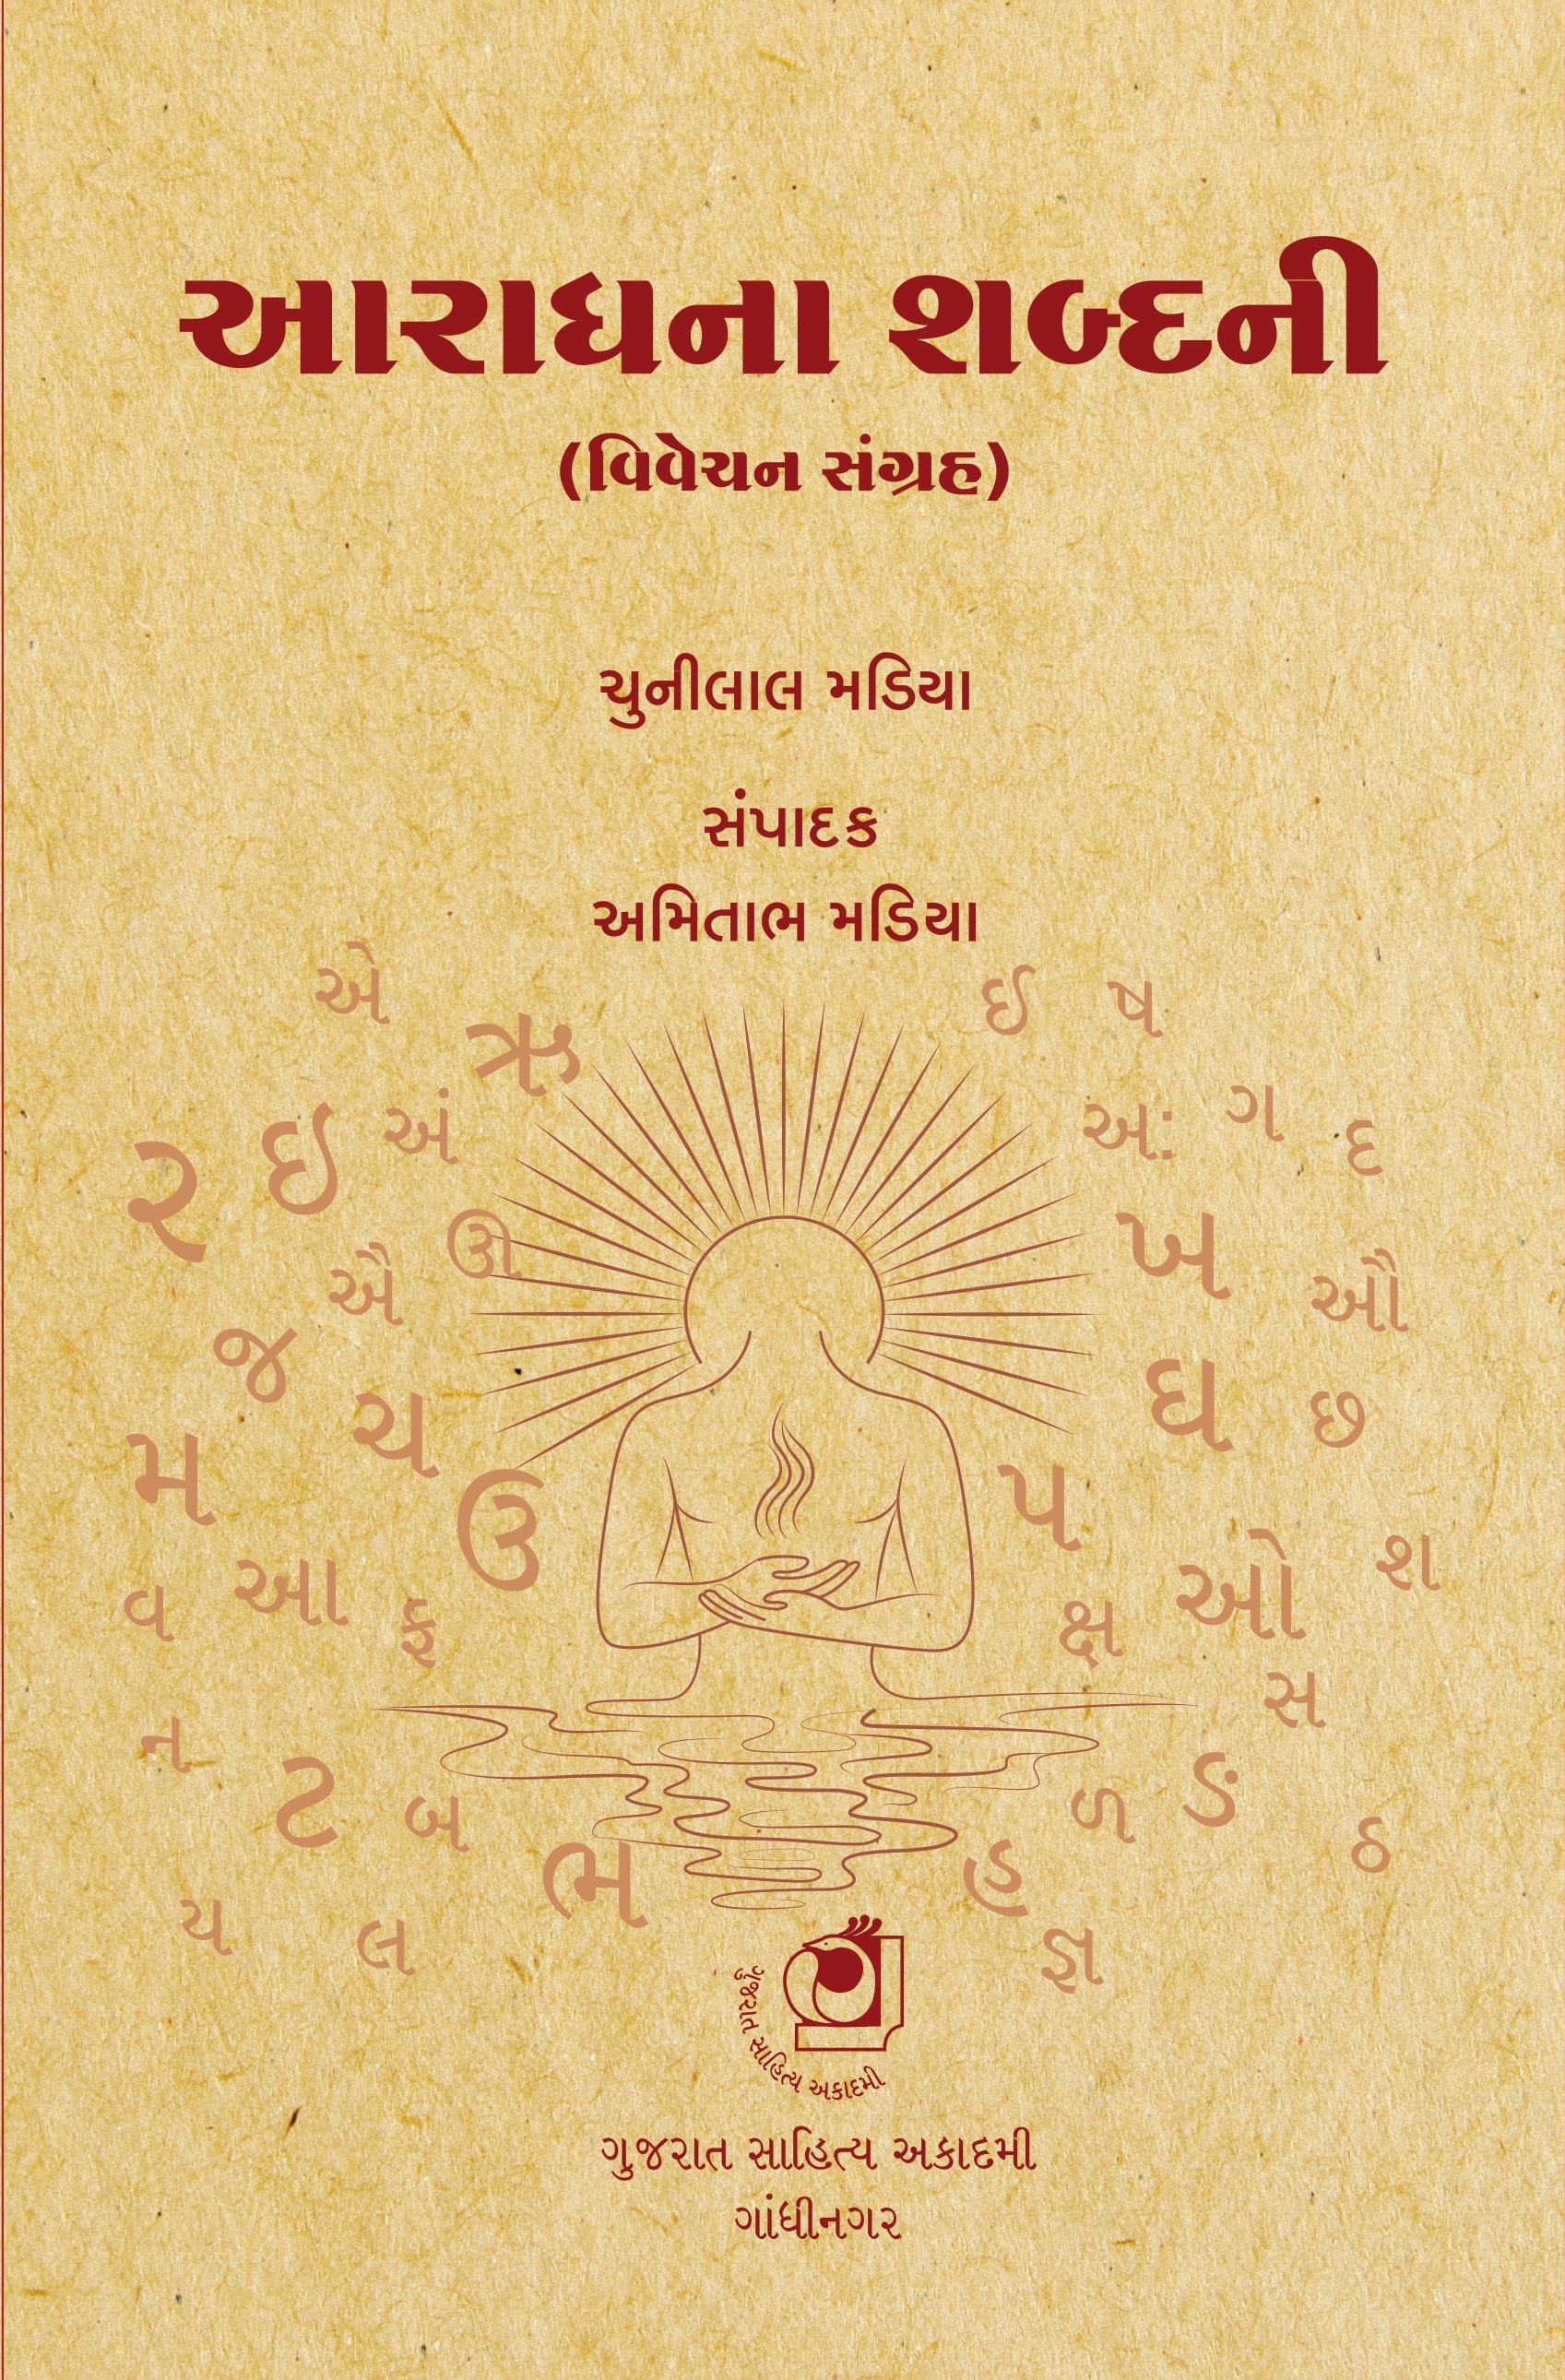 આરાધના શબ્દની
(વિવેચન સંગ્રહ)
ચુનીલાલ મડિયા
સંપાદક
અમિતાભ મડિયા
એ
ઋ
ઈ
ષ
ર
ઇ
અં
અઃ
ગ
દ
ઐ
ઊ
ખ
ઔ
જ
ચ
ઘ
છ
મ
ઉ
પ
વ
આ
ફ
ક્ષ
ઓ
શ
ન
સ
ટ
બ
ળ
ઙ
ઠ
ભ
હ
ય
લ
જ્ઞ
ગુજરાત સાહિત્ય અકાદમી
ગુજરાત સાહિત્ય અકાદમી
ગાંધીનગર